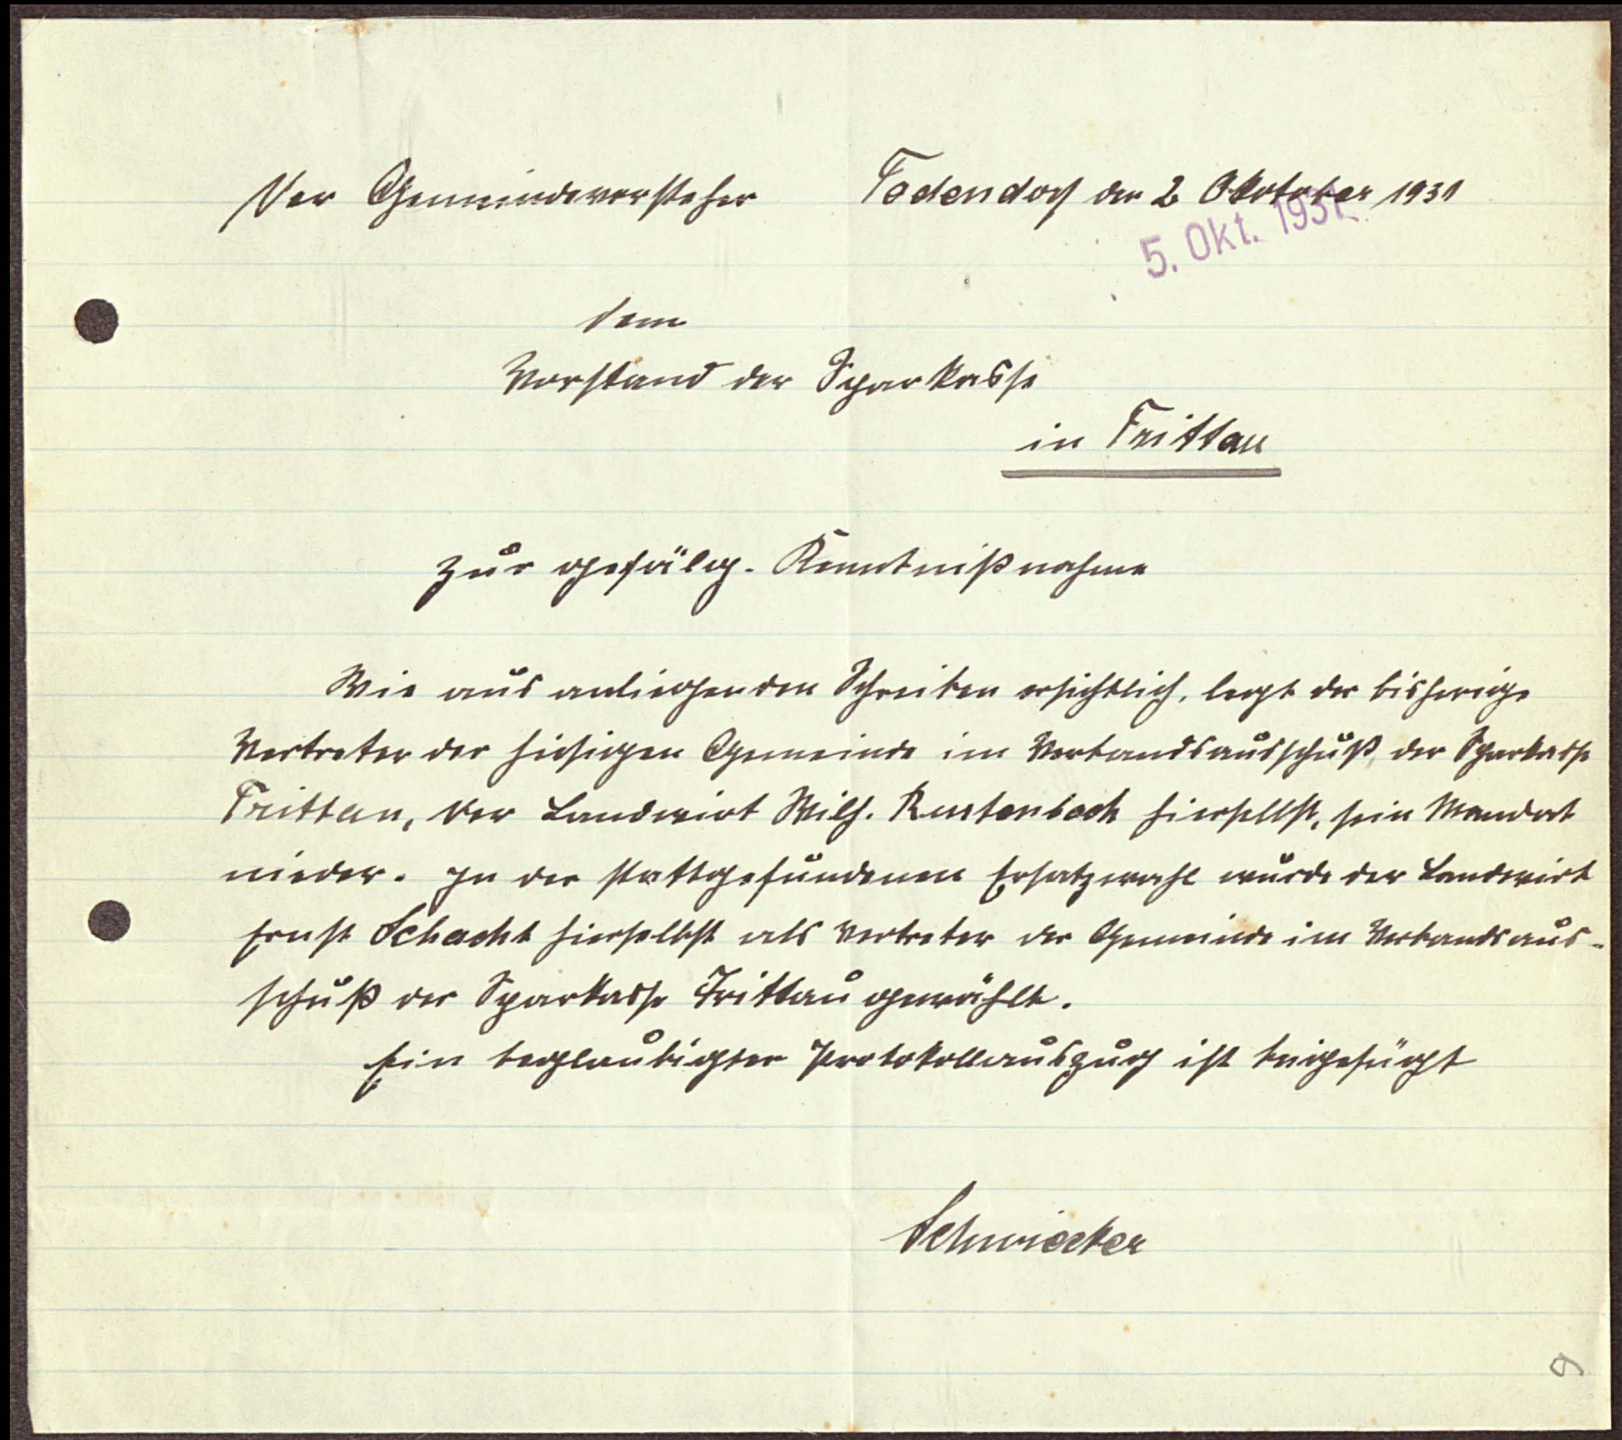 Der Gemeindevorsteher Todendorf den 2 Oktober 1931
5. Okt. 1931
Dem
Vorstand der Sparkasse
in Trittau
zur gefälig. Kenntnißnahme
Wie aus anliegenden Schreiben ersichtlich, legt der bisherige
Vertreter der hiesigen Gemeinde im Verbandsausschuß der Sparkasse
Trittau, der Landwirt Wilh. hierselbst, sein Mandat
nieder. In der stattgefundenen Ersatzwahl wurde der Landwirt
Ernst Schacht hierselbst als Vertreter der Gemeinde im Verbandsaus-
schuß der Sparkasse Trittau gewählt.
Ein beglaubigter Protokollauszug ist beigefügt
Schwiecker
9